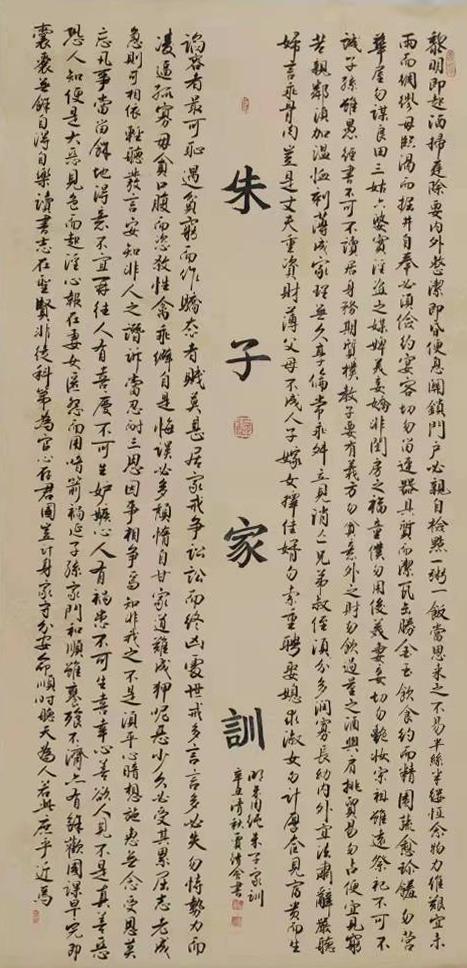 黎明即起洒掃庭除要内外整潔即昏便息關鎖門户必親自檢點一粥一飯當思来之不易半絲半縷恒念物力維艱宜未
雨而綢繆毋臨渴而掘井自奉必須儉約宴客切勿留連器具質而潔瓦缶勝金玉飲食約而精園蔬愈珍饈勿營
華屋勿謀良田三姑六婆實淫盗之媒婢美妾嬌非閨房之福童僕勿用俊美妻妾切勿艷妝宗祖雖遠祭祀不可不
誠子孫雖愚經書不可不讀居身務期質樸教子要有義方勿貪意外之財勿飲過量之酒與肩挑貿易勿占便宜見窮
苦親鄰須加温恤刻薄成家理無久享倫常乖舛立見消亡兄弟叔侄須分多潤寡長幼内外宜法肅辭嚴聽
婦言乖骨肉豈是丈夫重資財薄父母不成人子嫁女擇佳婿勿索重聘娶媳求淑女勿計厚奩見富貴而生
朱子家訓
明朱用純朱子家訓
辛丑清秋賈清会書
諂容者最可耻遇貧窮而作驕态者賤莫甚居家戒争訟訟而終凶處世戒多言言多必失勿恃勢力而
凌逼孤寡毋貪口腹而恣殺牲禽乖僻自是悔誤必多頹惰自甘家道難成狎昵惡少久必受其累屈志老成
急則可相依輕聽發言安知非人之譖訴當忍耐三思因事相争焉知非我之不是須平心暗想施惠無念受恩莫
忘凡事當留餘地得意不宜再往人有喜慶不可生妒嫉心人有禍患不可生喜幸心善欲人見不是真善惡
恐人知便是大惡見色而起淫心報在妻女匿怨而用暗箭禍延子孫家門和順雖饔飧不濟亦有餘歡國課早完即
囊橐無餘自得自樂讀書志在聖賢非徒科第為官心存君國豈計身家守分安命順時聽天為人若此庶乎近焉